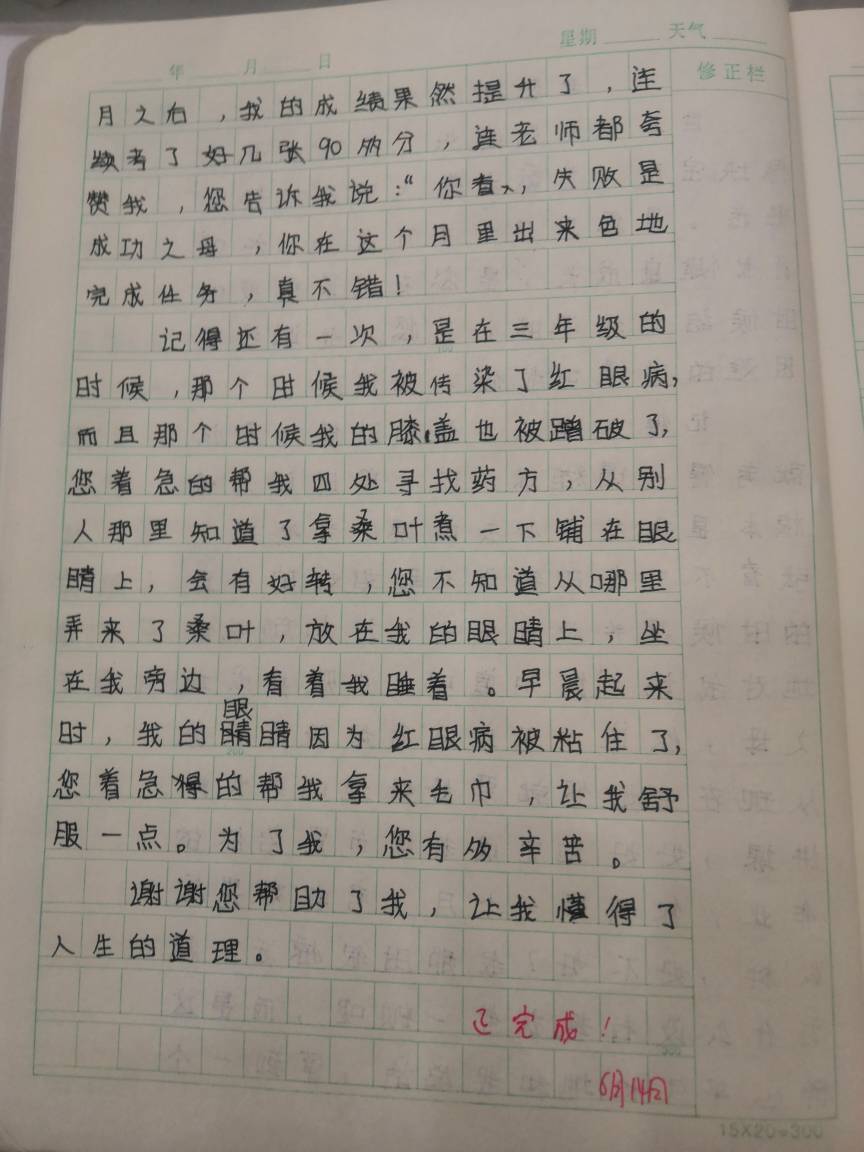 年 月 日 星期 天气
修正栏
月之后，我的成绩果然提升了，连
续考了好几张90多分，连老师都夸
赞我，您告诉我说：“你看，失败是
成功之母，你在这个月里出来色地
完成任务，真不错！
记得还有一次，是在三年级的
时候，那个时候我被传染了红眼病，
而且那个时候我的膝盖也被蹭破了，
您着急的帮我四处寻找药方，从别
人那里知道了拿桑叶煮一下铺在眼
睛上，会有好转，您不知道从哪里
弄来了桑叶，放在我的眼睛上，坐
在我旁边，看着我睡着。早晨起来
时，我的眼睛因为红眼病被粘住了，
您着急得的帮我拿来毛巾，让我舒
服一点。为了我，您有多辛苦。
谢谢您帮助了我，让我懂得了
人生的道理。
已完成！
6月14日
15X20=300